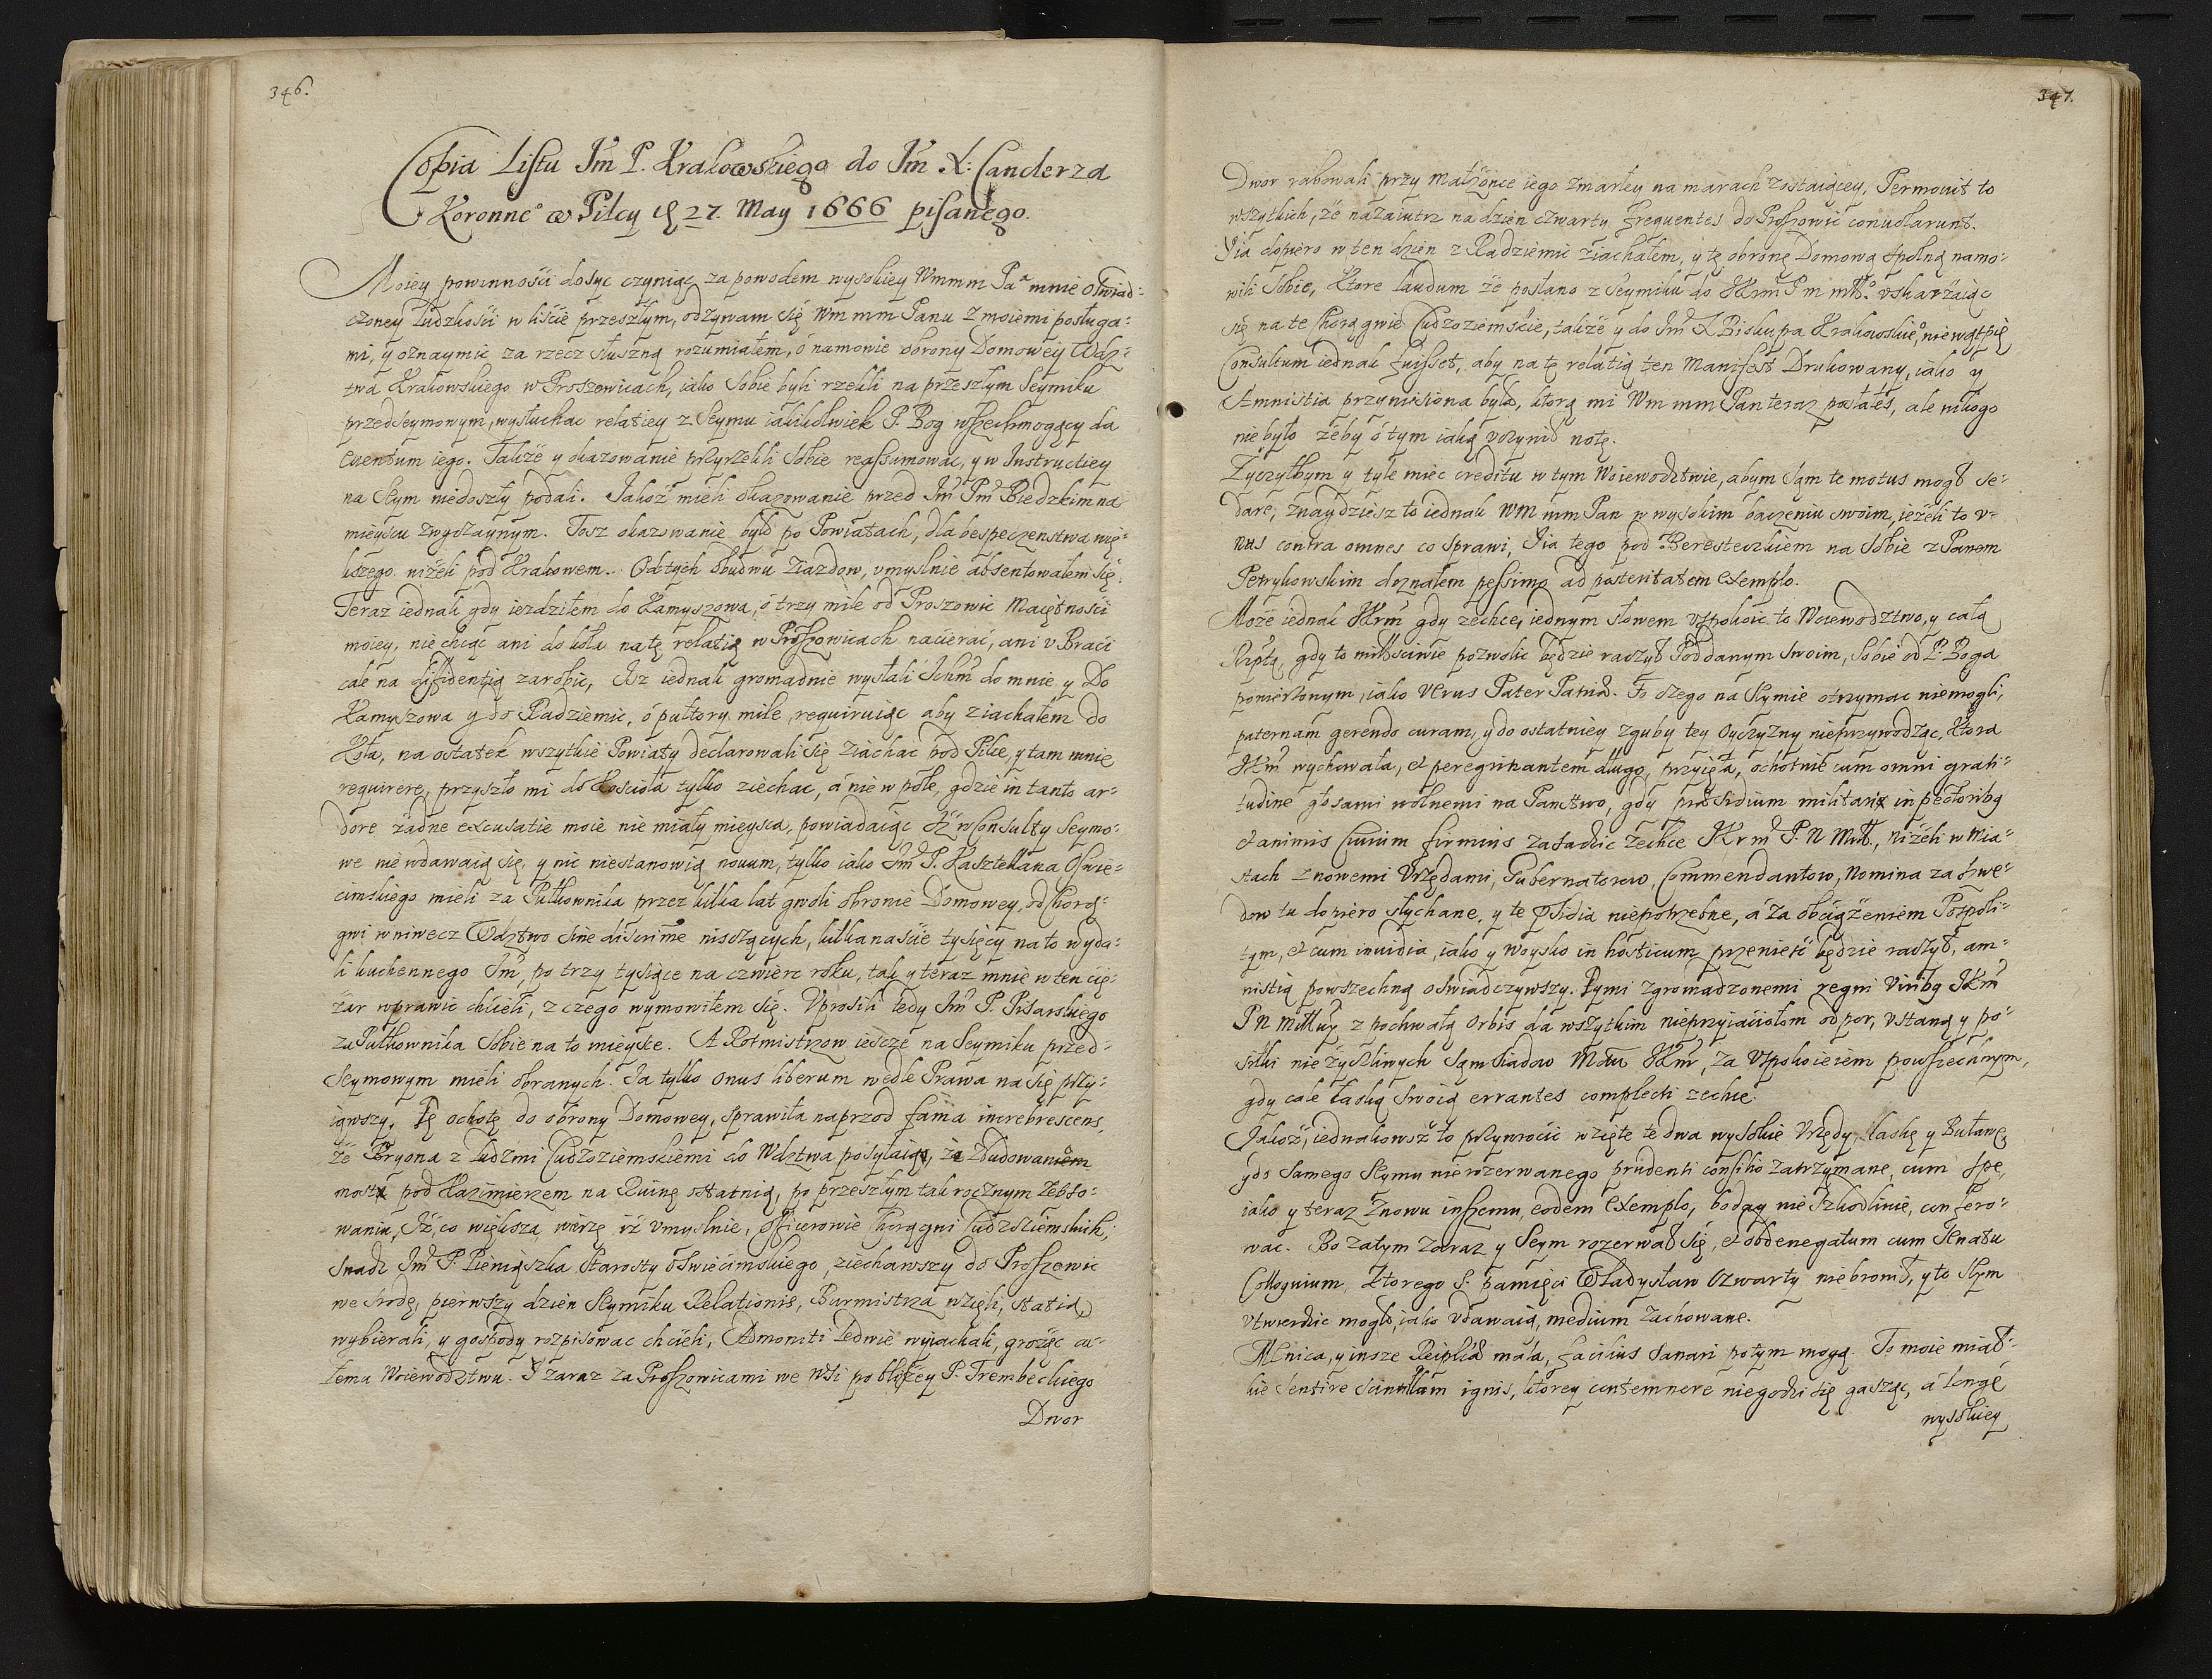 346.
Copia Listu Jm P. Krakowskiego do Jm X: Canclerza
Koronne° w Pilcy 27. May 1666 pisanego.
Moiey powinnosci dosyc czyniąc za powodem wysokiey Wmmm Pa mnie oswiad-
czoney ludzkosci w liscie przeszłym, odzywam się Wm mm Panu z moiemi posługa-
mi, y oznaymic za rzecz słuszną rozumiałem, o namowie obrony Domowey Wdz-
twa Krakowskiego w Proszowicach, iako Sobie byli rzekli na przeszłym Seymiku
przedseymowym, wysłuchac relatiey z Seymu iakikolwiek P. Bog wszechmogący da
euentum iego. Takze y okazowanie przyrzekli Sobie reassumowac, y w Instructiey
na Seym niedoszły podali. Jakoż mieli okazowanie przed Jm Pm Biedzkim na
mieyscu zwyczaynym. Tosz okazowanie było po Powiatach, dla bespeczenstwa wię-
kszego nizeli pod Krakowem. Od tych obudwu Ziazdow, vmyslnie absentowałem się.
Teraz iednak gdy iezdziłem do Kamyszowa, o trzy mile od Proszowic Maiętnosci
moiey, nie chcąc ani do koła na tę relatią w Proszowicach nacierac, ani v Braci
cale na diffidentią zarobic, Isz iednak gromadnie wysłali Ichm do mnie y Do
Kamyszowa y do Radziemic, o pułtory mile, requiruiąc aby ziachałem do
Koła, na ostatek wszytkie Powiaty declarowali się ziachac pod Pilce, y tam mnie
requirere, przyszło mi do Koscioła tylko ziechac, a nie w pole, gdzie in tanto ar-
dore żadne excusatie moie nie miały mieysca, powiadaiąc iż w Consulty Seymo-
we nie wdawaią się, y nic niestanowią nouum, tylko iako Jm P. Kasztellana Oswie-
cimskiego mieli za Pułkownika przez kilka lat gwoli obronie Domowey, od Chorą-
gwi w niwecz Wdztwo sine discrime niszczących, kilkanascie tysięcy na to wyda-
li kuchennego Jm, po trzy tysiące na czwierc roku, tak y teraz mnie w ten cię-
żar wprawic chcieli, z czego wymowiłem się. Vprosili tedy Jm P. Pisarskiego
za Pułkownika Sobie na to mieysce. A Rotmistrzow iescze na Seymiku przed-
Seymowym mieli obranych. Ja tylko onus liberum wedle Prawa na się przy-
iąwszy. Tę ochotę do obrony Domowey, sprawiła naprzod fama increbrescens,
że Bryona z ludzmi Cudzoziemskiemi do Wdztwa posyłaią, za zbudowaniem
mostu pod Kazimierzem na Ruinę ostatnią, po przeszłym tak rocznym Zebro-
waniu, Iż, co większa, wierzę iż vmyslnie, Officerowie Chorągwi Cudzoziemskich,
Snadz Jm P. Pieniążka Starosty Oswiecimskiego, ziechawszy do Proszowic
we srodę, pierwszy dzien Seymiku Relationis, Burmistrza wzięli, statią
wybierali, y gospody rozpisowac chcieli, Admoniti ledwie wyiachali, grożąc ca-
łemu Woiewodztwu. Y zaraz za Proszowicami we Wsi pobliżey P. Trembeckiego
Dwor
347.
Dwor rabowali przy małżonce iego zmarłey na marach zostaiącey, Permouit to
wszytkich, że nazaiutrz na dzien czwarty frequentes do Proszowic conuolarunt.
Y ia dopiero w ten dzien z Radziemic ziachałem, y tę obronę Domową spolną namo-
wili Sobie, Ktore laudum że posłano z Seymiku do JKrm P m mł° vskarżaiąc
się na te Chorągwie Cudzoziemskie, także y do Jm X Biskupa Krakowskie°, nie wątpię
Consultum iednak fuisset, aby na tę relatią ten Manifest Drukowany, iako y
Amnistia przyniesiona była, ktorą mi Wm mm Pan teraz posłałeś, ale nikogo
nie było żeby o tym iaką vczynił notę.
Życzyłbym y tyle miec creditu w tym Woiewodztwie, abym Sam te motus mogł se-
dare, znaydziesz to iednak Wm mm Pan w wysokim baczeniu swoim, ieżeli to v-
nus contra omnes co Sprawi, Y ia tego pod Beresteczkiem na Sobie z Panem
Petrykowskim doznałem pessimo ad posteritatem exemplo.
Może iednak JKrm gdy zechce, iednym słowem vspokoic to Woiewodztwo, y całą
Rzptą, gdy to miłosciwie pozwolic będzie raczył Poddanym Swoim, Sobie od P. Boga
powierzonym, iako verus Pater Patriæ. To czego na Seymie otrzymac niemogli,
paternam gerendo curam, y do ostatniey zguby tey Oyczyzny nieprzywodząc, Ktora
JKm wychowała, et peregrinantem długo, przyięła, ochotnie cum omni grati-
tudine głosami wolnemi na Panstwo, gdy præsidium militare in pectoribq
et animis Ciuium firmius zasadzic zechce JKrm P. N Mił., niżeli w Mia-
stach z nowemi Vrzędami, Gubernatorow, Commendantow, Nomina za Szwe-
dow tu dopiero słychane, y te præsidia niepotrzebne, a za obciążeniem Pospoli-
tym, et cum inuidia, iako y Woysko in hosticum przeniesc będzie raczył, am-
nistią powszechną oswiadczywszy. Tymi zgromadzonemi regni viribq JKm
P N Miłłwy z pochwałą Orbis da wszytkim nieprzyiaciołom odpor, vstaną y po-
siłki nieżyczliwych Sąmsiadow Mttu JKm, za vspokoieniem powszechnym,
gdy cale łaską Swoią errantes complecti zechce.
Jakoż, iednakowsz to przywrocic wzięte te dwa wysokie Vrzędy, laskę y Buławę,
y do Samego Seymu nierozerwanego prudenti consilio zatrzymane, cum spe,
iako y teraz znowu inszemu, eodem exemplo, boday nie Szkodliwie, confero-
wac. Bo zatym zaraz y Seym rozerwał się, et ob denegatum cum Senatu
Colloquium, Ktorego S. pamięci Władysław Czwarty niebronił, y to Seym
vtwierdzic mogło, iako vdawaią, medium zachowane.
Mnica, y insze Reiplicæ mala, facilius sanari potym mogą. To moie miał-
kie Sentire scintillam ignis, ktorey contemnere niegodzi się gasząc, a longe
wysokiey